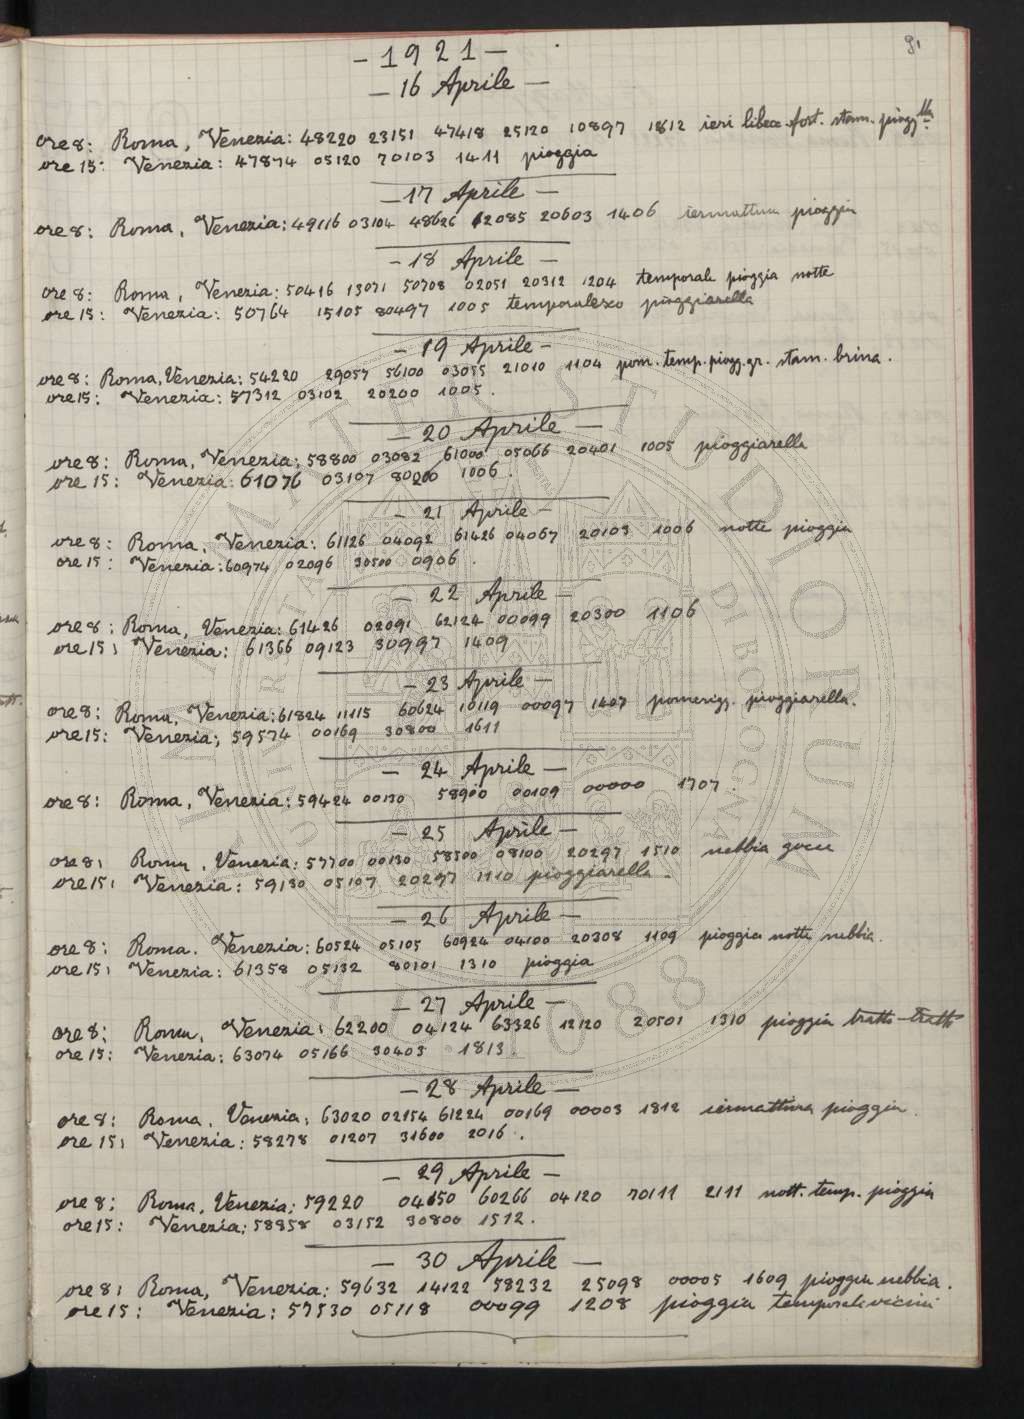 91
- 1921 -
- 16 Aprile -
ore 8: Roma, Venezia: 48220 23151 47418 25120 10897 1812 ieri libecc. fort. stam. piogg.lla
ore 15: Venezia: 47874 05120 70103 1411 pioggia
- 17 Aprile -
ore 8: Roma, Venezia: 49116 03104 48626 12085 20603 1406 iermattina pioggia
- 18 Aprile -
ore 8: Roma, Venezia: 50416 13071 50708 02051 20312 1204 temporale pioggia notte
ore 15: Venezia: 50764 15105 80497 1005 temporalesco pioggiarella
- 19 Aprile -
ore 8: Roma, Venezia: 54220 29057 56100 03055 21010 1104 pom. temp. piogg. gr. stam. brina.
ore 15: Venezia: 57312 03102 20200 1005.
- 20 Aprile -
ore 8: Roma, Venezia: 58800 03082 61000 05066 20401 1005 pioggiarella
ore 15: Venezia: 61076 03107 80200 1006.
- 21 Aprile -
ore 8: Roma, Venezia: 61126 04092 61426 04067 20103 1006 notte pioggia
ore 15: Venezia: 60974 02096 30500 0906.
- 22 Aprile -
ore 8: Roma, Venezia: 61426 02091 62124 00099 20300 1106
ore 15: Venezia: 61366 09123 30997 1409
- 23 Aprile -
ore 8: Roma, Venezia: 61824 11115 60624 10119 00097 1407 pomerigg. pioggiarella.
ore 15: Venezia; 59574 00169 30800 1611
- 24 Aprile -
ore 8: Roma, Venezia: 59424 00130 58900 00109 00000 1707.
- 25 Aprile -
ore 8: Roma, Venezia: 57700 00130 58500 08100 20297 1510 nebbia gocce
ore 15: Venezia: 59130 05107 20297 1110 pioggiarella.
- 26 Aprile -
ore 8: Roma. Venezia: 60524 05105 60924 04100 20308 1109 pioggia notte nebbia.
ore 15: Venezia: 61358 05132 80101 1310 pioggia
- 27 Aprile -
ore 8: Roma, Venezia: 62200 04124 63326 12120 20501 1310 pioggia tratto-tratto
ore 15: Venezia: 63074 05166 30403 1813.
- 28 Aprile -
ore 8: Roma, Venezia: 63020 02154 61224 00169 00003 1812 iermattina pioggia.
ore 15: Venezia: 58278 01207 31600 2016.
- 29 Aprile -
ore 8: Roma, Venezia: 59220 04150 60266 04120 70111 2111 nott. temp. pioggia
ore 15: Venezia: 58858 03152 30800 1512.
- 30 Aprile -
ore 8: Roma, Venezia: 59632 14122 58232 25098 00005 1609 pioggia nebbia.
ore 15: Venezia: 57530 05118 00099 1208 pioggia temporali vicini
ALMA MATER STUDIORUM
UNIVERSITÀ DI BOLOGNA
A.D. 1088